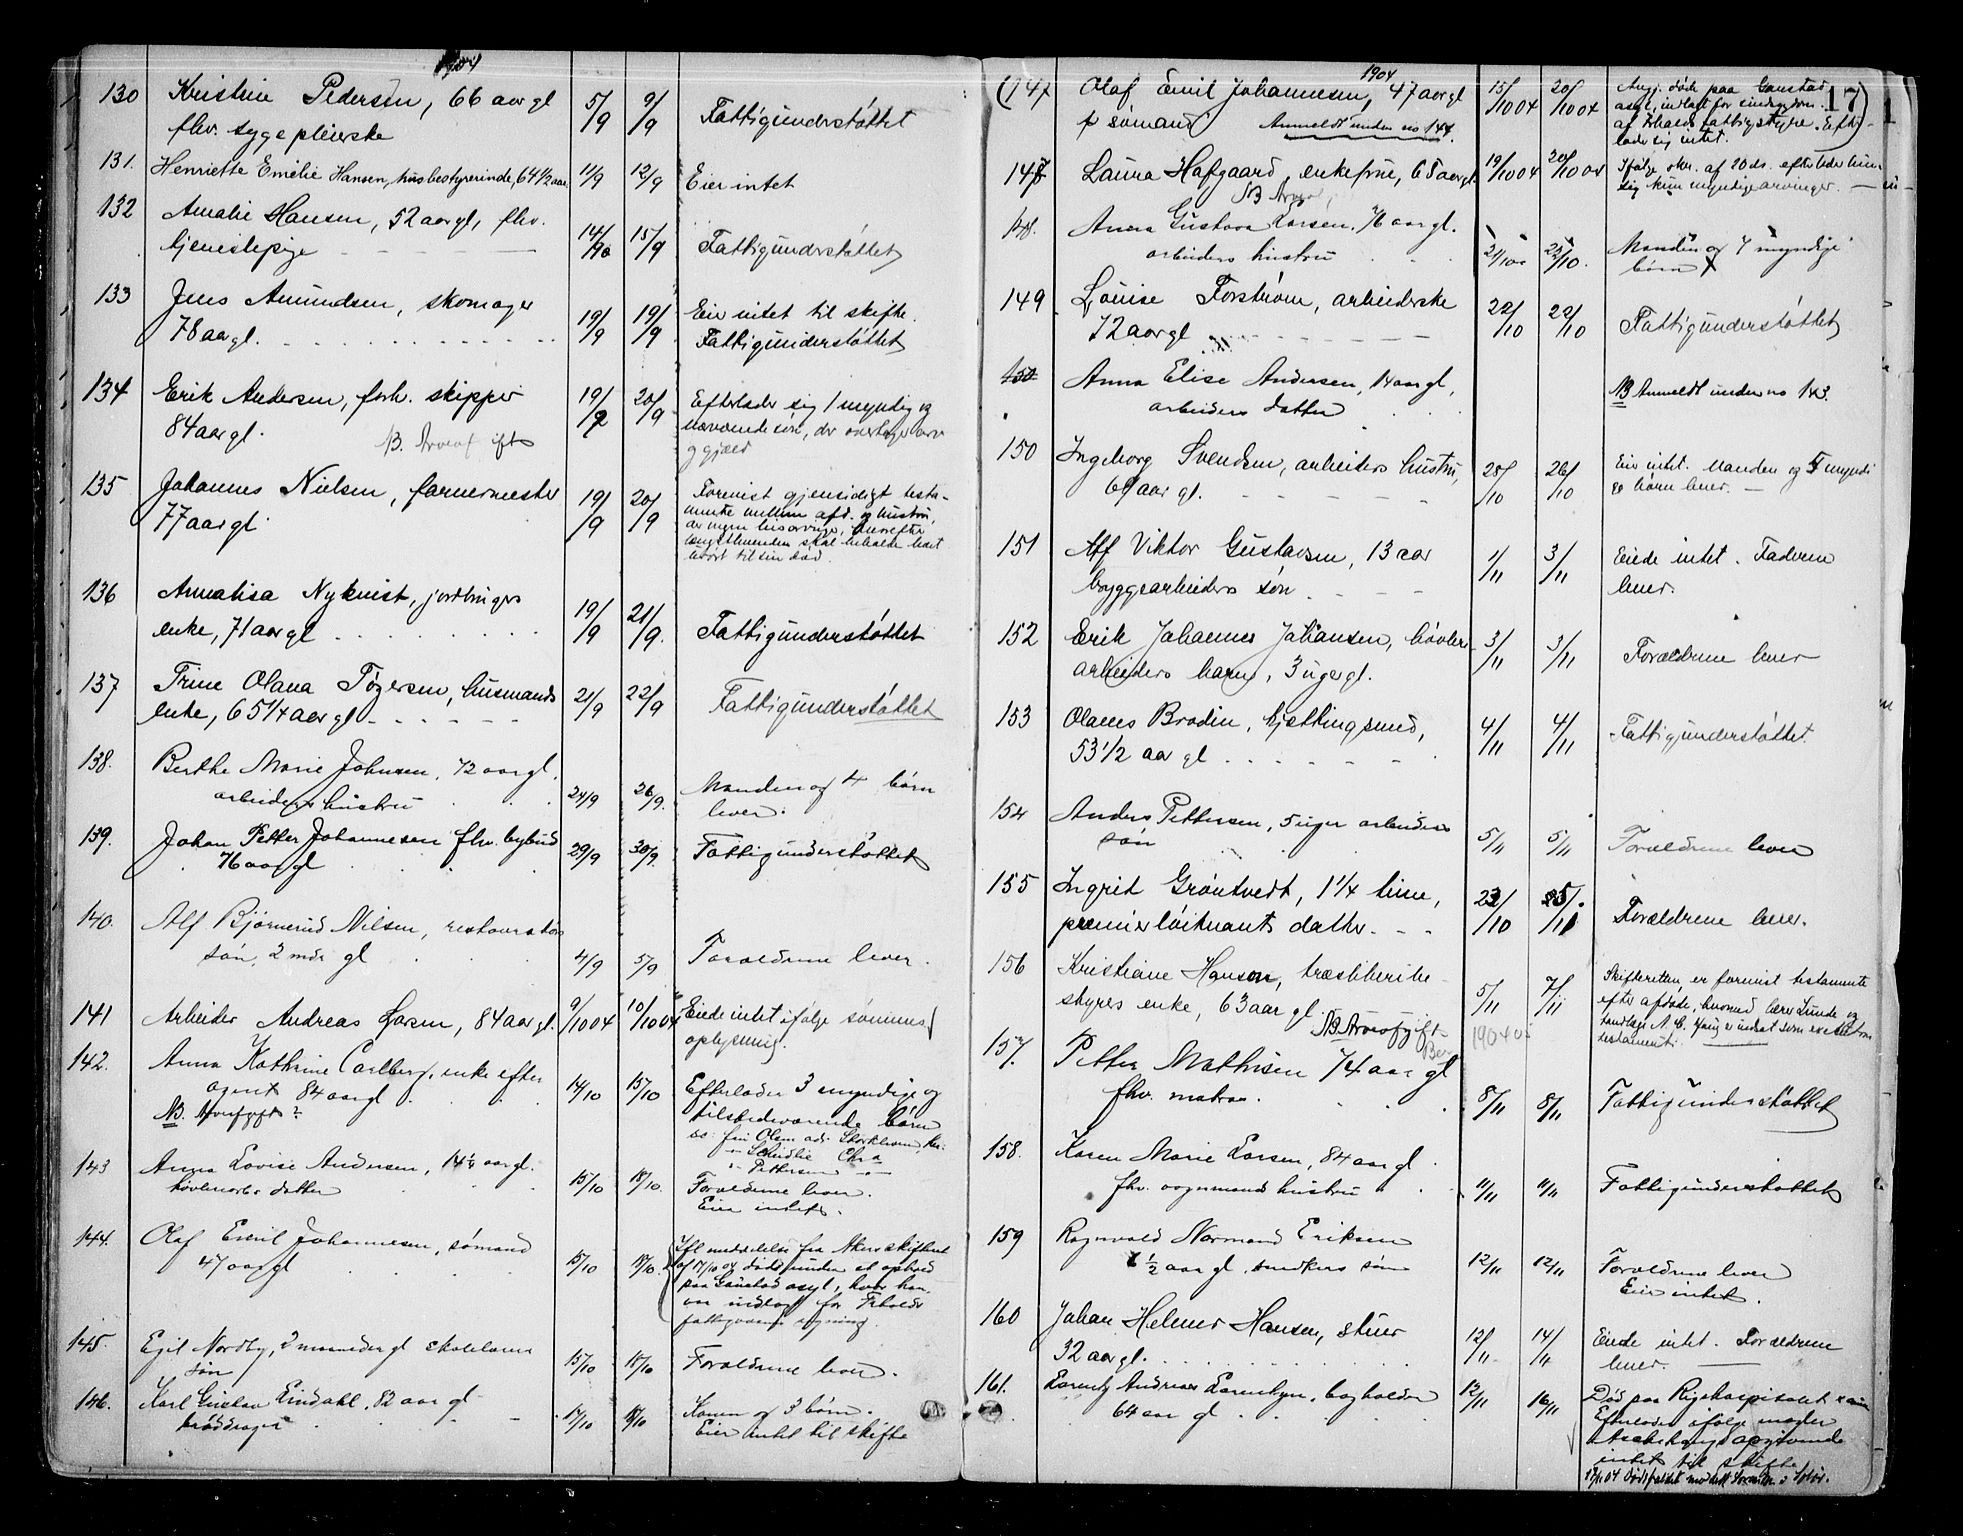 1904
130 Kristine Pedersen, 66 aar gl 5/9 9/9 Fattigunderstøttet
fhv. sygepleierske
131. Henriette Emilie Hansen, husbestyrerinde, 64 1/2 aar 11/9 12/9 Eier intet
132 Amalie Hansen, 52 aar gl, fhv.
tjenestepige 14/9 15/9 Fattigunderstøttet
133 Jens Amundsen, skomager Eier intet til skifte.
78 aar gl. 19/9 19/9 Fattigunderstøttet
134 Erik Andersen, forh. skipper 19/9 20/9 Efterlader sig 1 myndig og
84 aar gl. NB. nærværende søn, der overtager arv
og gjæld
135 Johannes Nielsen, farvermester 19/9 20/9 Forevist gjensidigt testa-
77 aar gl. mente mellem afd. og hustru,
længstlevende skal beholde boet
til sin død.
136 Annalisa Nykvist, jordbrugers
enke, 71 aar gl 19/9 21/9. Fattigunderstøttet
137 Trine Olava Tøgersen, husmands
enke, 65 1/4 aar gl 21/9 22/9 Fattigunderstøttet
138. Berthe Marie Johnsen, 72 aar gl. Manden og 4 børn
arbeiders hustru 24/9 26/9. lever.
139. Johan Petter Johannesen fhv. bybud
76 aar gl 29/9 30/9. Fattigunderstøttet
140. Alf Bjørnerud Nilsen, restauratørs
søn, 2 mdr gl 4/9 5/9 Forældrene lever.
141 Arbeider Andreas Larsen, 84 aar gl 9/10 04 10/10 04 Eiede intet ifølge sønnens
oplysning.
142. Anna Kathrine Carlberg, enke efter
agent 84 aar gl 14/10 15/10 Efterlader 3 myndige og
NB. Arveafgift? tilstedeværende børn
143 Anna Lovise Andersen, 14 1/4 aar gl.
høvleriarb.s datter 15/10 18/10. Forældrene lever.
Eier intet.
144. Olaf Emil Johannesen, sømand Ifl meddelelse fra Akers skifteret
47 aar gl 15/10 18/10. af 17/10 04 død under et ophold
paa Gaustad asyl, hvor han
var indlagt for Fr.halds
fattigvæsens regning.
145. Egil Nordby, 2 maaneder gl skolelærers
søn 15/10 18/10 Forældrene lever.
146. Karl Gustav Lindahl, 82 aar gl Konen og 3 børn.
brøddrager 17/10 18/10 Eier intet til skifte
1904 17
(147 Olaf Emil Johannesen, 47 aar gl 15/10 04 20/10 04 Ang. døde paa Gaustad
f sømand Anmeldt under no 144. asyl, indlagt for
af Fr.halds fattigstyre. Efter-
lader sig intet.
147 Laura Hafgaard, enkefrue, 65 aar gl. 19/10 04 20/10 04 Ifølge skr. af 20 ds. efterlader hun
NB sig kun myndige arvinger.
148. Anna Gustava Larsen, 76 aar gl.
arbeiders hustru 21/10 25/10. Manden og 7 myndige
børn
149 Louise Forstrøm, arbeiderske
72 aar gl 22/10 22/10 Fattigunderstøttet
150 Anna Elise Andersen, 14 aar gl,
arbeiders datter NB Anmeldt under no 143.
150 Ingeborg Svendsen, arbeiders hustru,
69 aar gl. 25/10 26/10 Eier intet. Manden og 5 myndi
ge børn lever.
151 Alf Viktor Gustavsen, 13 aar 1/11 3/11 Eiede intet. Faderen
bryggearbeiders søn lever.
152 Erik Johannes Johansen, høvleri-
arbeiders barn, 3 uger gl. 3/11 3/11 Forældrene lever
153 Olaves Brodin, kjettingsmed,
53 1/2 aar gl 4/11 4/11 Fattigunderstøttet.
154 Anders Pettersen, 5 uger arbeiders
søn 5/11 5/11 Forældrene lever
155 Ingrid Grøntvedt, 1 1/4 time,
premierløitnants datter 23/10 5/11 Forældrene lever.
156 Kristiane Hansen, træsliberibe-
styrers enke, 63 aar gl. 5/11 7/11 Skifteretten er forevist testamente
efter afdøde, hvorved lærer Lunde og
NB Arveafgift testamenti.
157. Petter Mathisen 74 aar gl
fhv. matros. 8/11 8/11 Fattigunderstøttet
158. Karen Marie Larsen, 84 aar gl
fhv. vognmands hustru 11/11 11/11 Fattigunderstøttet
159 Ragnvald Normand Eriksen
1/2 aar gl. snedkers søn 12/11 12/11 Forældrene lever
Eier intet.
160 Johan Helmer Hansen, stuer
32 aar gl. 12/11 14/11 Eiede intet. Forældrene
lever.
161. Lorentz Andreas Lorentzen, bogholder 12/11 16/11 Død paa Rigshospitalet
64 aar gl Efterlader ifølge
opgivende
intet til skifte